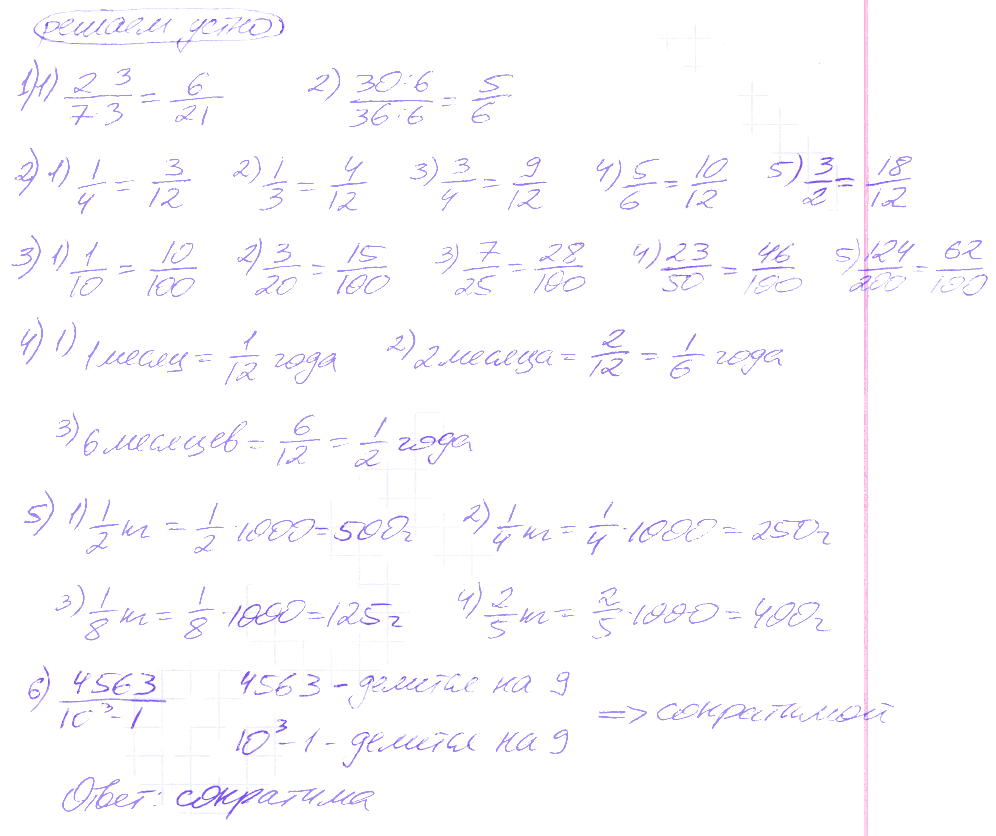 решаем устно
1) 1) 2 3/7·3 = 6/21 2) 30:6/36:6 = 5/6
2) 1) 1/4 = 3/12 2) 1/3 = 4/12 3) 3/4 = 9/12 4) 5/6 = 10/12 5) 3/2 = 18/12
3) 1) 1/10 = 10/100 2) 3/20 = 15/100 3) 7/25 = 28/100 4) 23/50 = 46/100 5) 124/200 = 62/100
4) 1) 1 месяц = 1/12 года 2) 2 месяца = 2/12 = 1/6 года
3) 6 месяцев = 6/12 = 1/2 года
5) 1) 1/2 кг = 1/2 · 1000 = 500 г 2) 1/4 кг = 1/4 · 1000 = 250 г
3) 1/8 кг = 1/8 · 1000 = 125 г 4) 2/5 кг = 2/5 · 1000 = 400 г
6) 4563/10³-1 4563 - делится на 9
10³-1 - делится на 9 => сократимой
Ответ: сократима